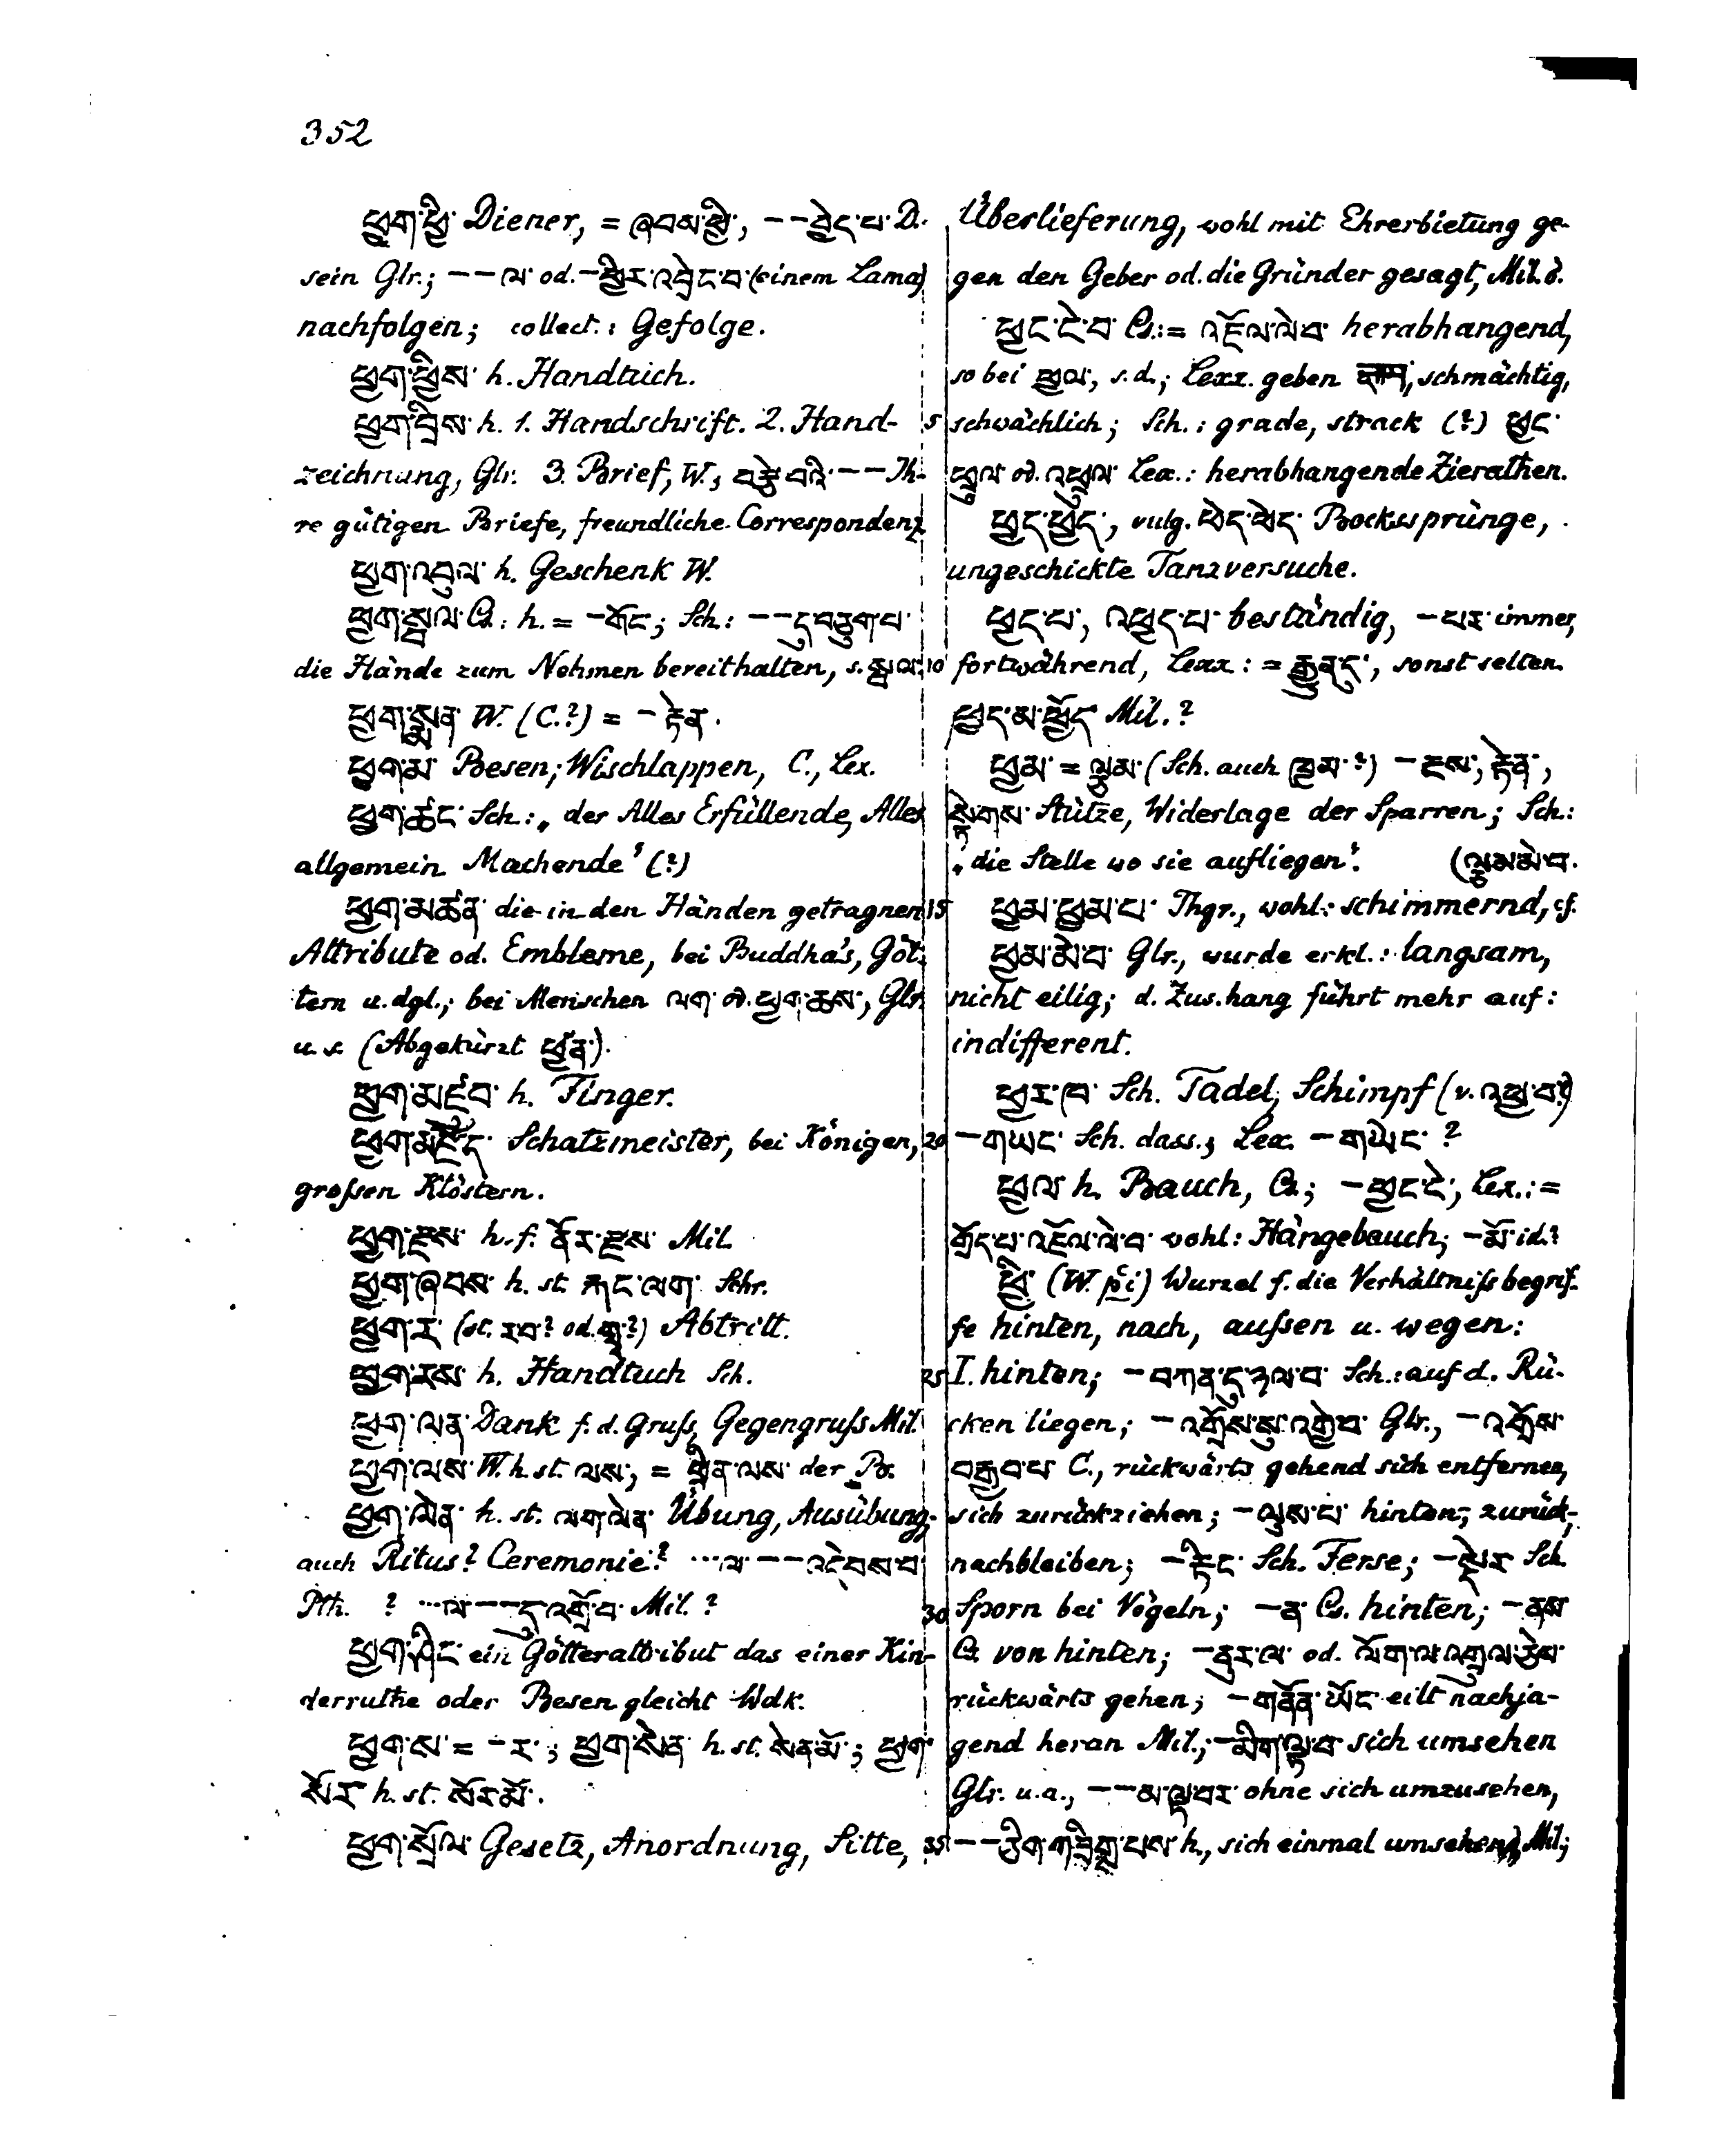 352
ཕྱག་ཕྱི་ Diener, = ཞབས་ཕྱི་, -- བྱེད་པ་ D.
sein Glr.; -- ལ་ od. - ཕྱིར་འབྲེང་བ་ (einem Lama)
nachfolgen; collect.: Gefolge.
ཕྱག་ཕྱིས་ h. Handtuch.
ཕྱག་བྲིས་ h. 1. Handschrift. 2. Hand-
zeichnung, Glr. 3. Brief, W., བརྩེ་བའི་ -- Ih-
re gütigen Briefe, freundliche Correspondenz
ཕྱག་འབུལ་ h. Geschenk W.
ཕྱག་སྦལ་ Cs.: h. = - ; Sch.: -- དུ་བཅུག་པ་
die Hände zum Nehmen bereithalten, s. སྦལ་
ཕྱག་སྨན་ W. (C.?) = - རྟེན་.
ཕྱག་མ་ Besen; Wischlappen, C., Lex.
ཕྱག་ཚང་ Sch.: „der Alles Erfüllende, Alles
allgemein Machende“ (?)
ཕྱག་མཚན་ die in den Händen getragnen
Attribute od. Embleme, bei Buddha's, Göt-
tern u. dgl.; bei Menschen ལག་ od. ཕྱག་ཆས་, Glr.
u. s. (Abgekürzt ཕྱཚན་).
ཕྱག་མཛུབ་ h. Finger.
ཕྱག་མཛོད་ Schatzmeister, bei Königen,
großen Klöstern.
ཕྱག་རྫས་ h. f. ནོར་རྫས་ Mil.
ཕྱག་ཞབས་ h. st. རྐང་ལག་ Schr.
ཕྱག་ར་ (st. རབ་? od. ?) Abtritt.
ཕྱག་རས་ h. Handtuch Sch.
ཕྱག་ལན་ Dank f. d. Gruß, Gegengruß Mil.
ཕྱག་ལས་ W. h. st. ལས་, = ཕྲིན་ལས་ der Bü.
ཕྱག་ལེན་ h. st. ལག་ལེན་ Übung, Ausübung,
auch Ritus? Ceremonie? ... ལ་ -- འདེབས་པ་
Pth. ? ... ལ་ -- དུ་འགྲོ་བ་ Mil.?
ཕྱག་ཤིང་ ein Götterattribut das einer Kin-
derruthe oder Besen gleicht Wdk.
ཕྱག་ས་ = - ར་; ཕྱག་སེན་ h. st. སེན་མོ་; ཕྱག་
སོར་ h. st. སོར་མོ་.
ཕྱག་སྲོལ་ Gesetz, Anordnung, Sitte,
Überlieferung, wohl mit Ehrerbietung ge-
gen den Geber od. die Gründer gesagt, Mil. ö.
ཕྱང་ངེ་བ་ Cs.: = འཇོལ་ལེ་བ་ herabhangend,
so bei ཕྱལ་, s. d.; Lexx. geben schmächtig,
5 schwächlich; Sch.: grade, strack (?) ཕྱང་
ཕྲུལ་ od. འཕྲུལ་ Lex.: herabhangende Zierathen.
ཕྱད་ཕྱོད་, vulg. ཕེད་ཕེད་ Bocksprünge,
ungeschickte Tanzversuche.
ཕྱད་པ་, འཕྱད་པ་ beständig, - པར་ immer,
10 fortwährend, Lexx.: = རྒྱུན་དུ་, sonst selten.
ཕྱད་མ་ཕྱོད་ Mil.?
ཕྱམ་ = ལྕམ་ (Sch. auch ཁྱམ་?) - རྫས་, རྟེན་,
སྟེགས་ Stütze, Widerlage der Sparren; Sch.:
„die Stelle wo sie aufliegen“. (ལྷམ་མེ་བ་.
15 ཕྱམ་ཕྱམ་པ་ Thgr., wohl: schimmernd, cf.
ཕྱམ་མེ་བ་ Glr., wurde erkl.: langsam,
nicht eilig; d. Zus.hang führt mehr auf:
indifferent.
ཕྱར་ཁ་ Sch. Tadel, Schimpf (v. འཕྱ་བ་?)
20 - གཡང་ Sch. dass., Lex. - གཡེང་ ?
ཕྱལ་ h. Bauch, Cs.; - ཕྱང་ངེ་, Lex.: =
གྲོད་པ་འཇོལ་ལེ་བ་ wohl: Hängebauch; - མོ་ id.?
ཕྱི་ (W. p̔i) Wurzel f. die Verhältnißbegrif-
fe hinten, nach, außen u. wegen:
25 I. hinten; - བཀན་དུ་ཉལ་བ་ Sch.: auf d. Rü-
cken liegen; - འགྲོས་སུ་འགྲོ་བ་ Glr., - འགྲོས་
བརྒྱབ་པ་ C., rückwärts gehend sich entfernen,
sich zurückziehen; - ལུས་པ་ hinten-, zurück-,
nachbleiben; - རྟིང་ Sch. Ferse; - སྡེར་ Sch.
30 Sporn bei Vögeln; - ན་ Cs. hinten; - ནས་
Cs. von hinten; - ནུར་ལ་ od. ལོག་ལ་འགྲུལ་ཅེས་
rückwärts gehen; - གནོན་ཡོང་ eilt nachja-
gend heran Mil.; - མིག་ལྟ་བ་ sich umsehen
Glr. u. a., -- མ་ལྟ་བར་ ohne sich umzusehen,
35 -- ཅིག་གཟིགས་པས་ h., sich einmal umsehend, Mil;